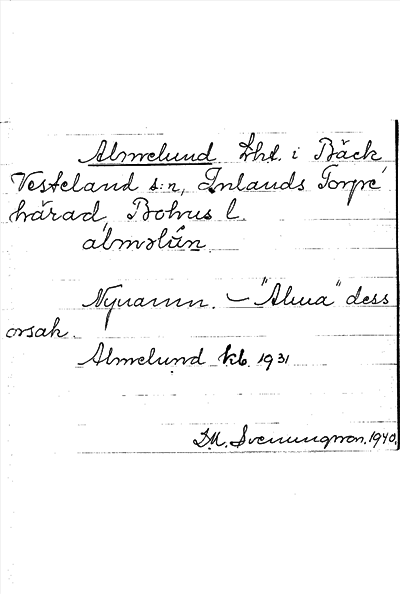 Almelund lht. i Bäck
Vesteland s:n, Inlands Torpe
härad, Bohus l.
alməlún
Nynamn. – "Alma" dess
orsak.
Almelund kb. 1931
I.M. Svenungsson. 1940.